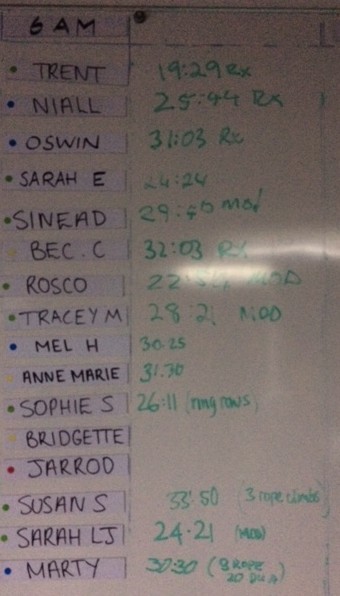 6 AM
TRENT 19:29 Rx
NIALL 25:44 Rx
OSWIN 31:03 Rx
SARAH E 24:24
SINEAD mod
BEC. C 32:03 RX
ROSCO MOD
TRACEY M 28:21 MOD
MEL H 30.25
ANNE MARIE 31.30
SOPHIE S 26:11 (ring rows)
BRIDGETTE
JARROD
SUSAN S 33:50 (3 rope climbs)
SARAH LJ 24.21 (MOD)
MARTY 30:30 ROPE
20